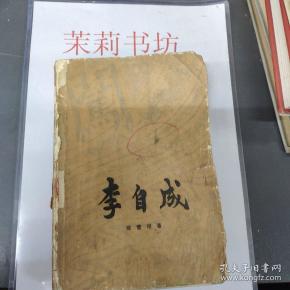 茉莉书坊
李自成
姚雪垠著
孔夫子旧书网